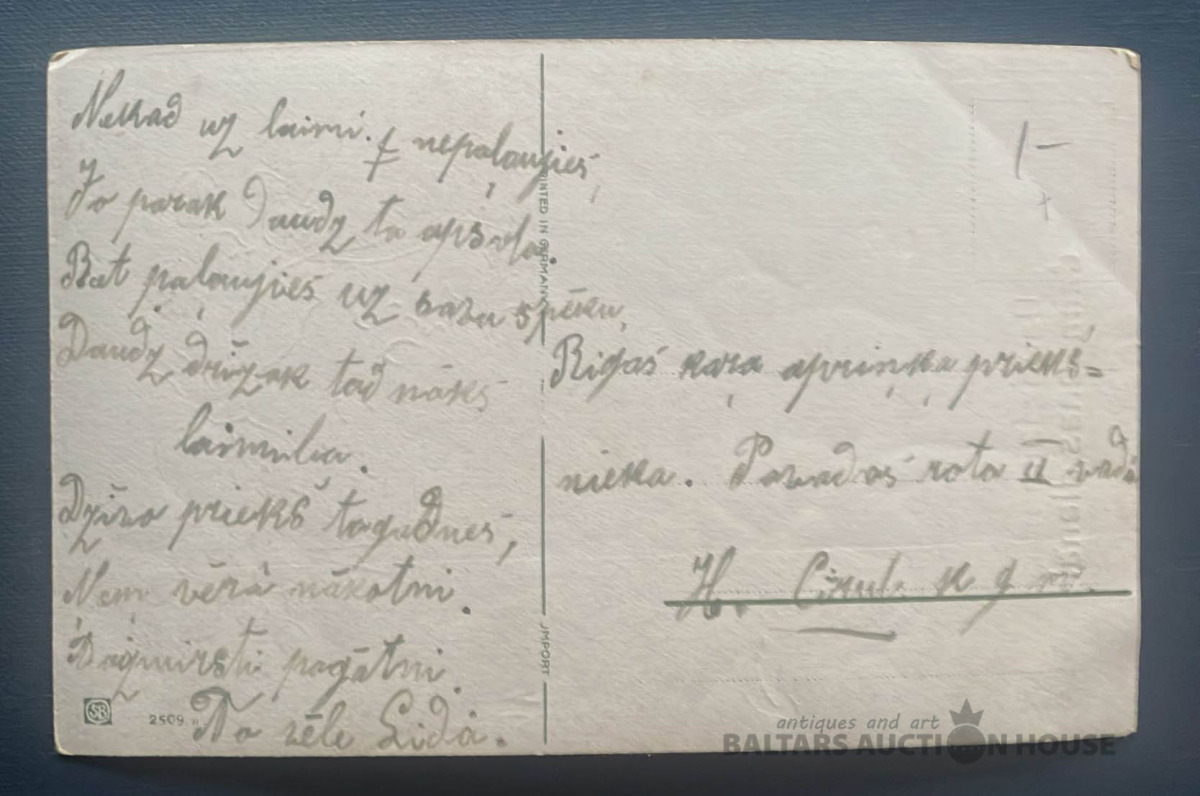 Nekad uz laimi nepaļaujies,
Jo parak Daudz ta apsola.
Bet paļaujies uz savu spēku,
Daudz drīzak tad nāks
laimiba.
Dzīvo priekš tagadnes,
Ņem vērā nākotni.
Aizmirsti pagātni.
To vēle Lidā.
SB
2509
PRINTED IN GERMANY
IMPORT
1-
+
Rigas kaŗa apriņķa priekš=
nieka. Pavadas rota II vadā
H.
antiques and art
BALTARS AUCTION HOUSE